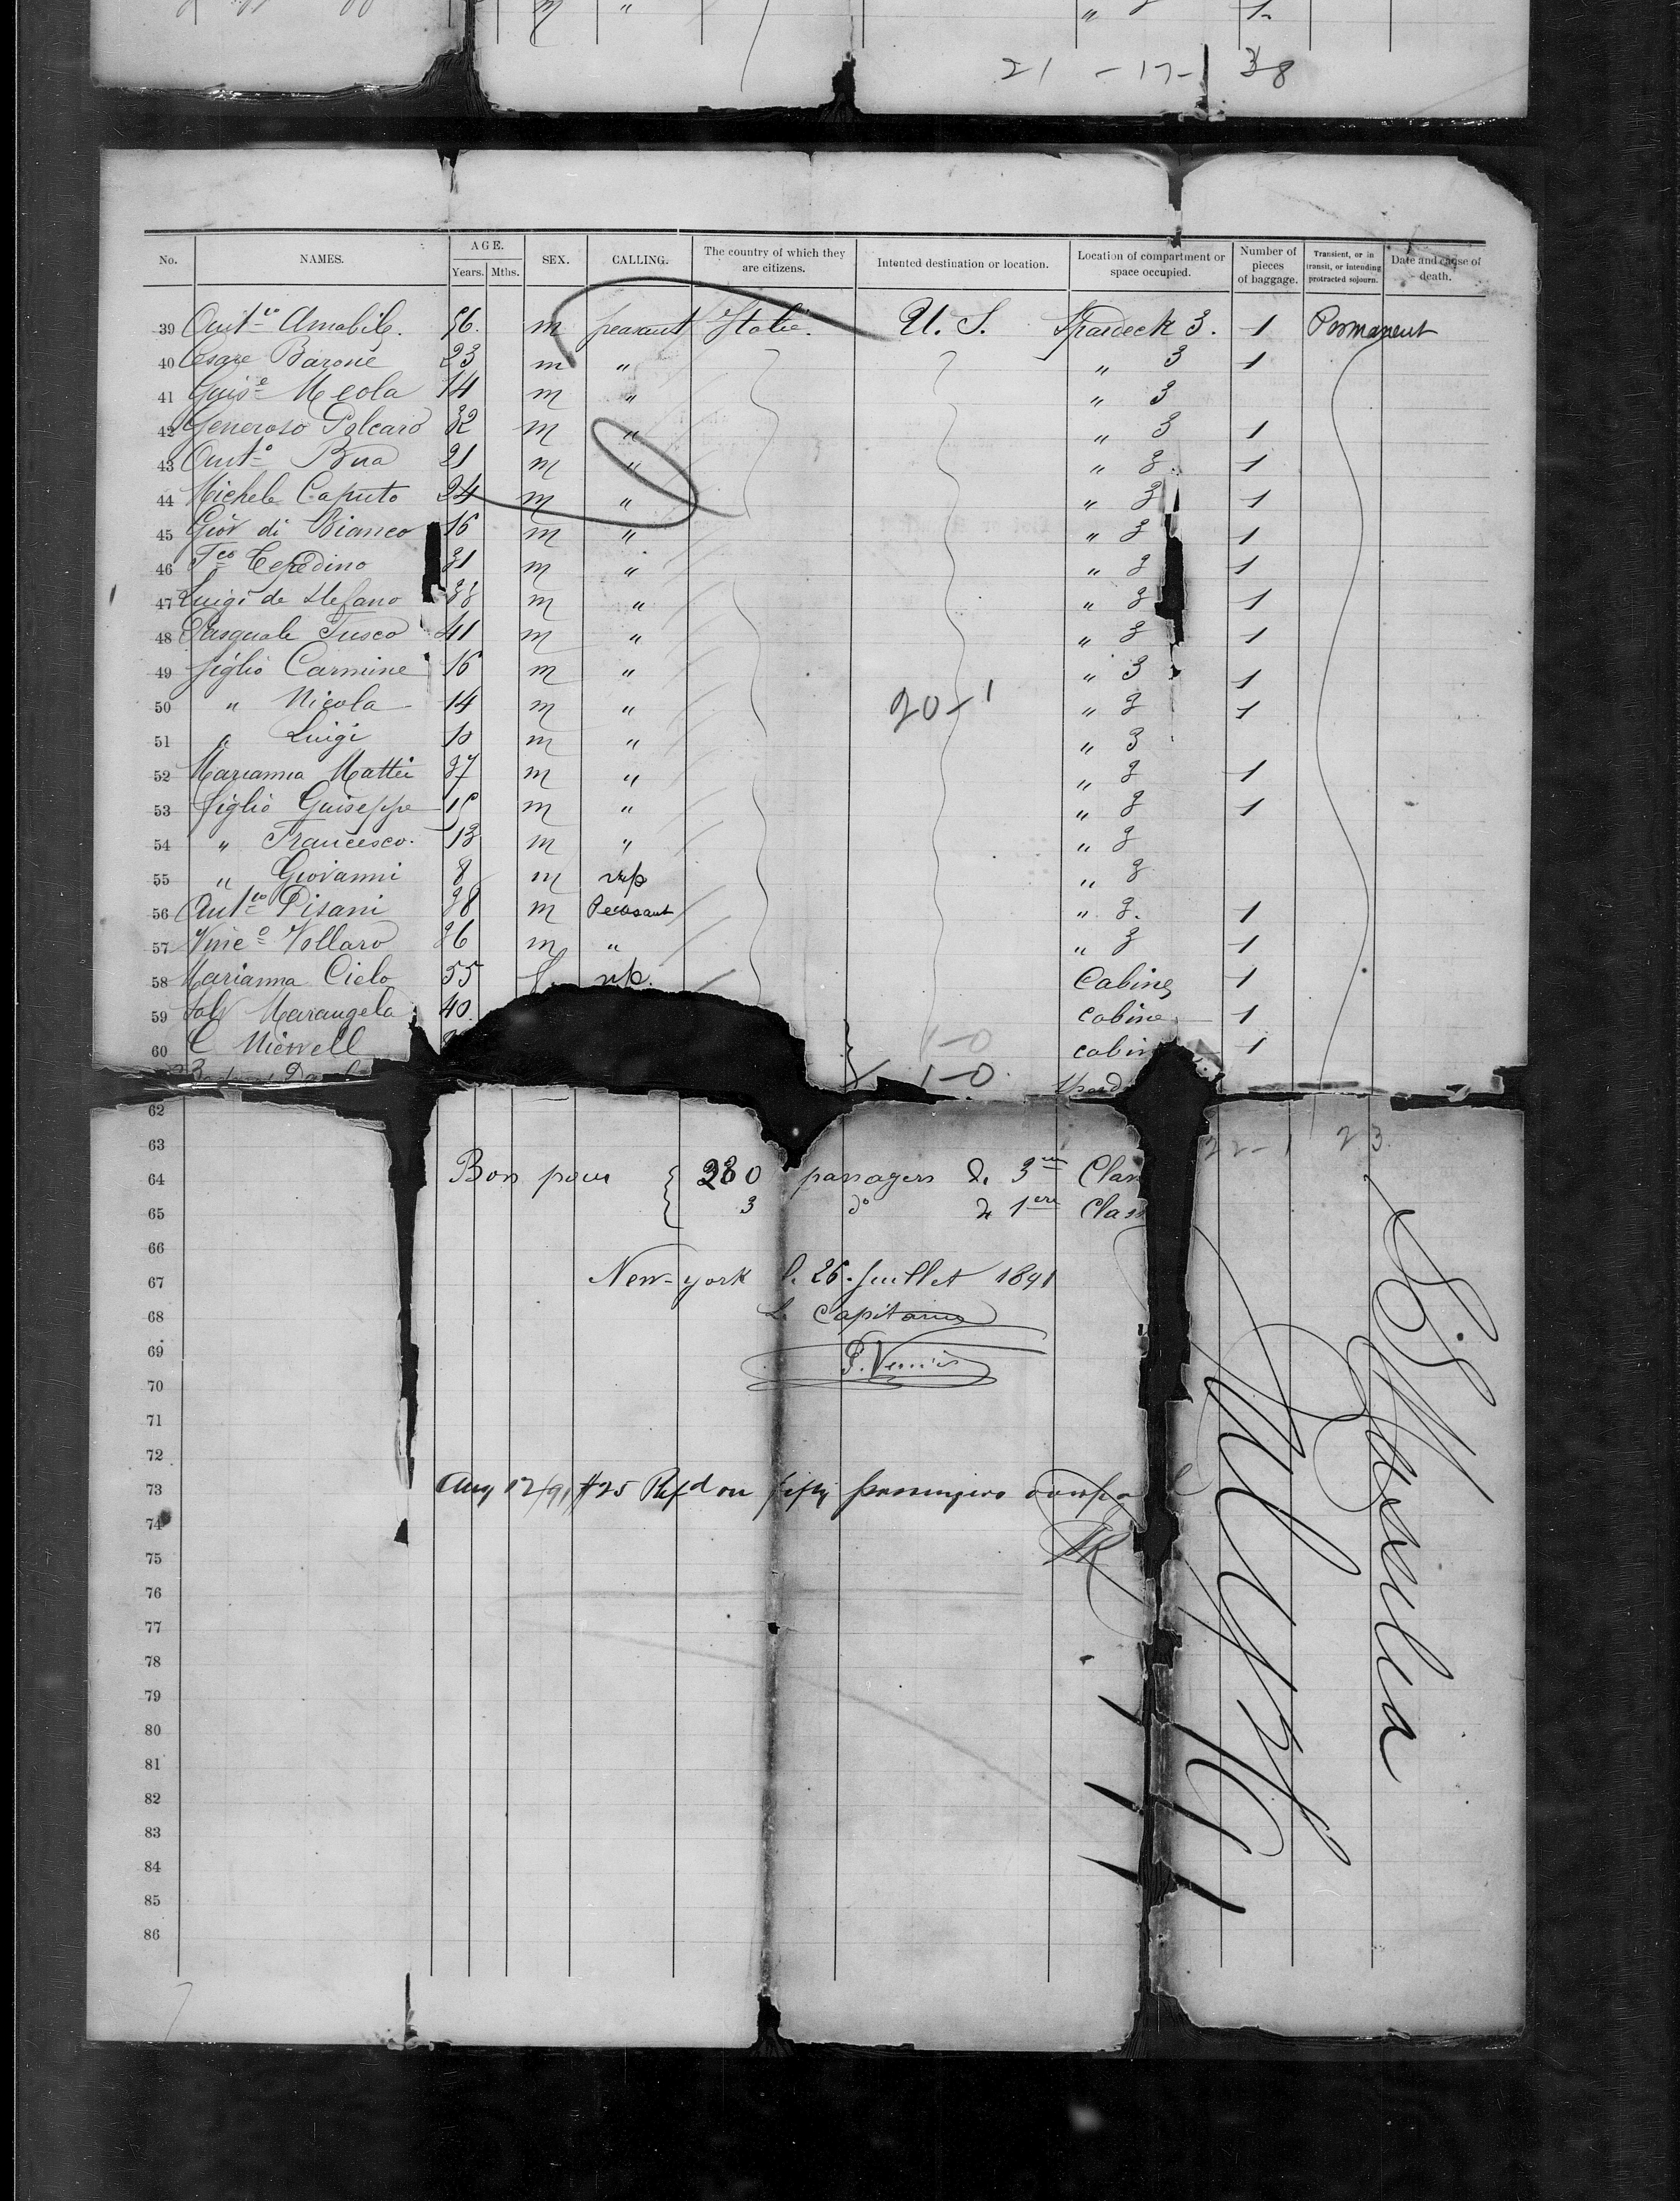 " 3 1
21 - 17 - 38
No. NAMES. AGE. Years. Mths. SEX. CALLING. The country of which they are citizens. Intented destination or location. Location of compartment or space occupied. Number of pieces of baggage. Transient, or in transit, or intending protracted sojourn. Date and cause of death.
39 Antio Amabile. 36. m peasant Italie. U. S. Spardeck 3. 1 Permanent
40 Cesare Barone 23 m " " 3 1
41 Guise Meola 14 m " " 3
42 Generoso Polcaro 32 m " " 3 1
43 Anto Bua 21 m " " 3 1
44 Michele Caputo 24 m " " 3 1
45 Giov di Bianco 16 m " " 3 1
46 Fco 31 m " " 3 1
47 Luigi de Stefano 33 m " " 3 1
48 Pasquale Fusco 41 m " " 3 1
49 figlio Carmine 16 m " " 3 1
50 " Nicola 14 m " 20-1 " 3 1
51 " Luigi 10 m " " 3
52 Marianna Mattei 37 m " " 3 1
53 figlio Guiseppe m " " 3 1
54 " Francesco. 13 m " " 3
55 " Giovanni 8 m " 3
56 Antio Pisani 38 m Peasant " 3. 1
57 Vinco Vollaro 36 m " " 3 1
58 Marianna Cielo 55 f. Cabine 1
59 Marangela 40. cabine 1
60 C 1-0 cabin 1
1-0. Spard
62
63 22-1 23
64 Bon pour 280 passagers de 3me Clas
65 3 do de 1ere Class
66
67 New-york le 26. Juillet 1891
68 Le Capitaine
69
70
71
72
73 Aug 12/91 $25 Refd on fifty passengers
74
75
76
77
78
79
80
81
82
83
84
85
86